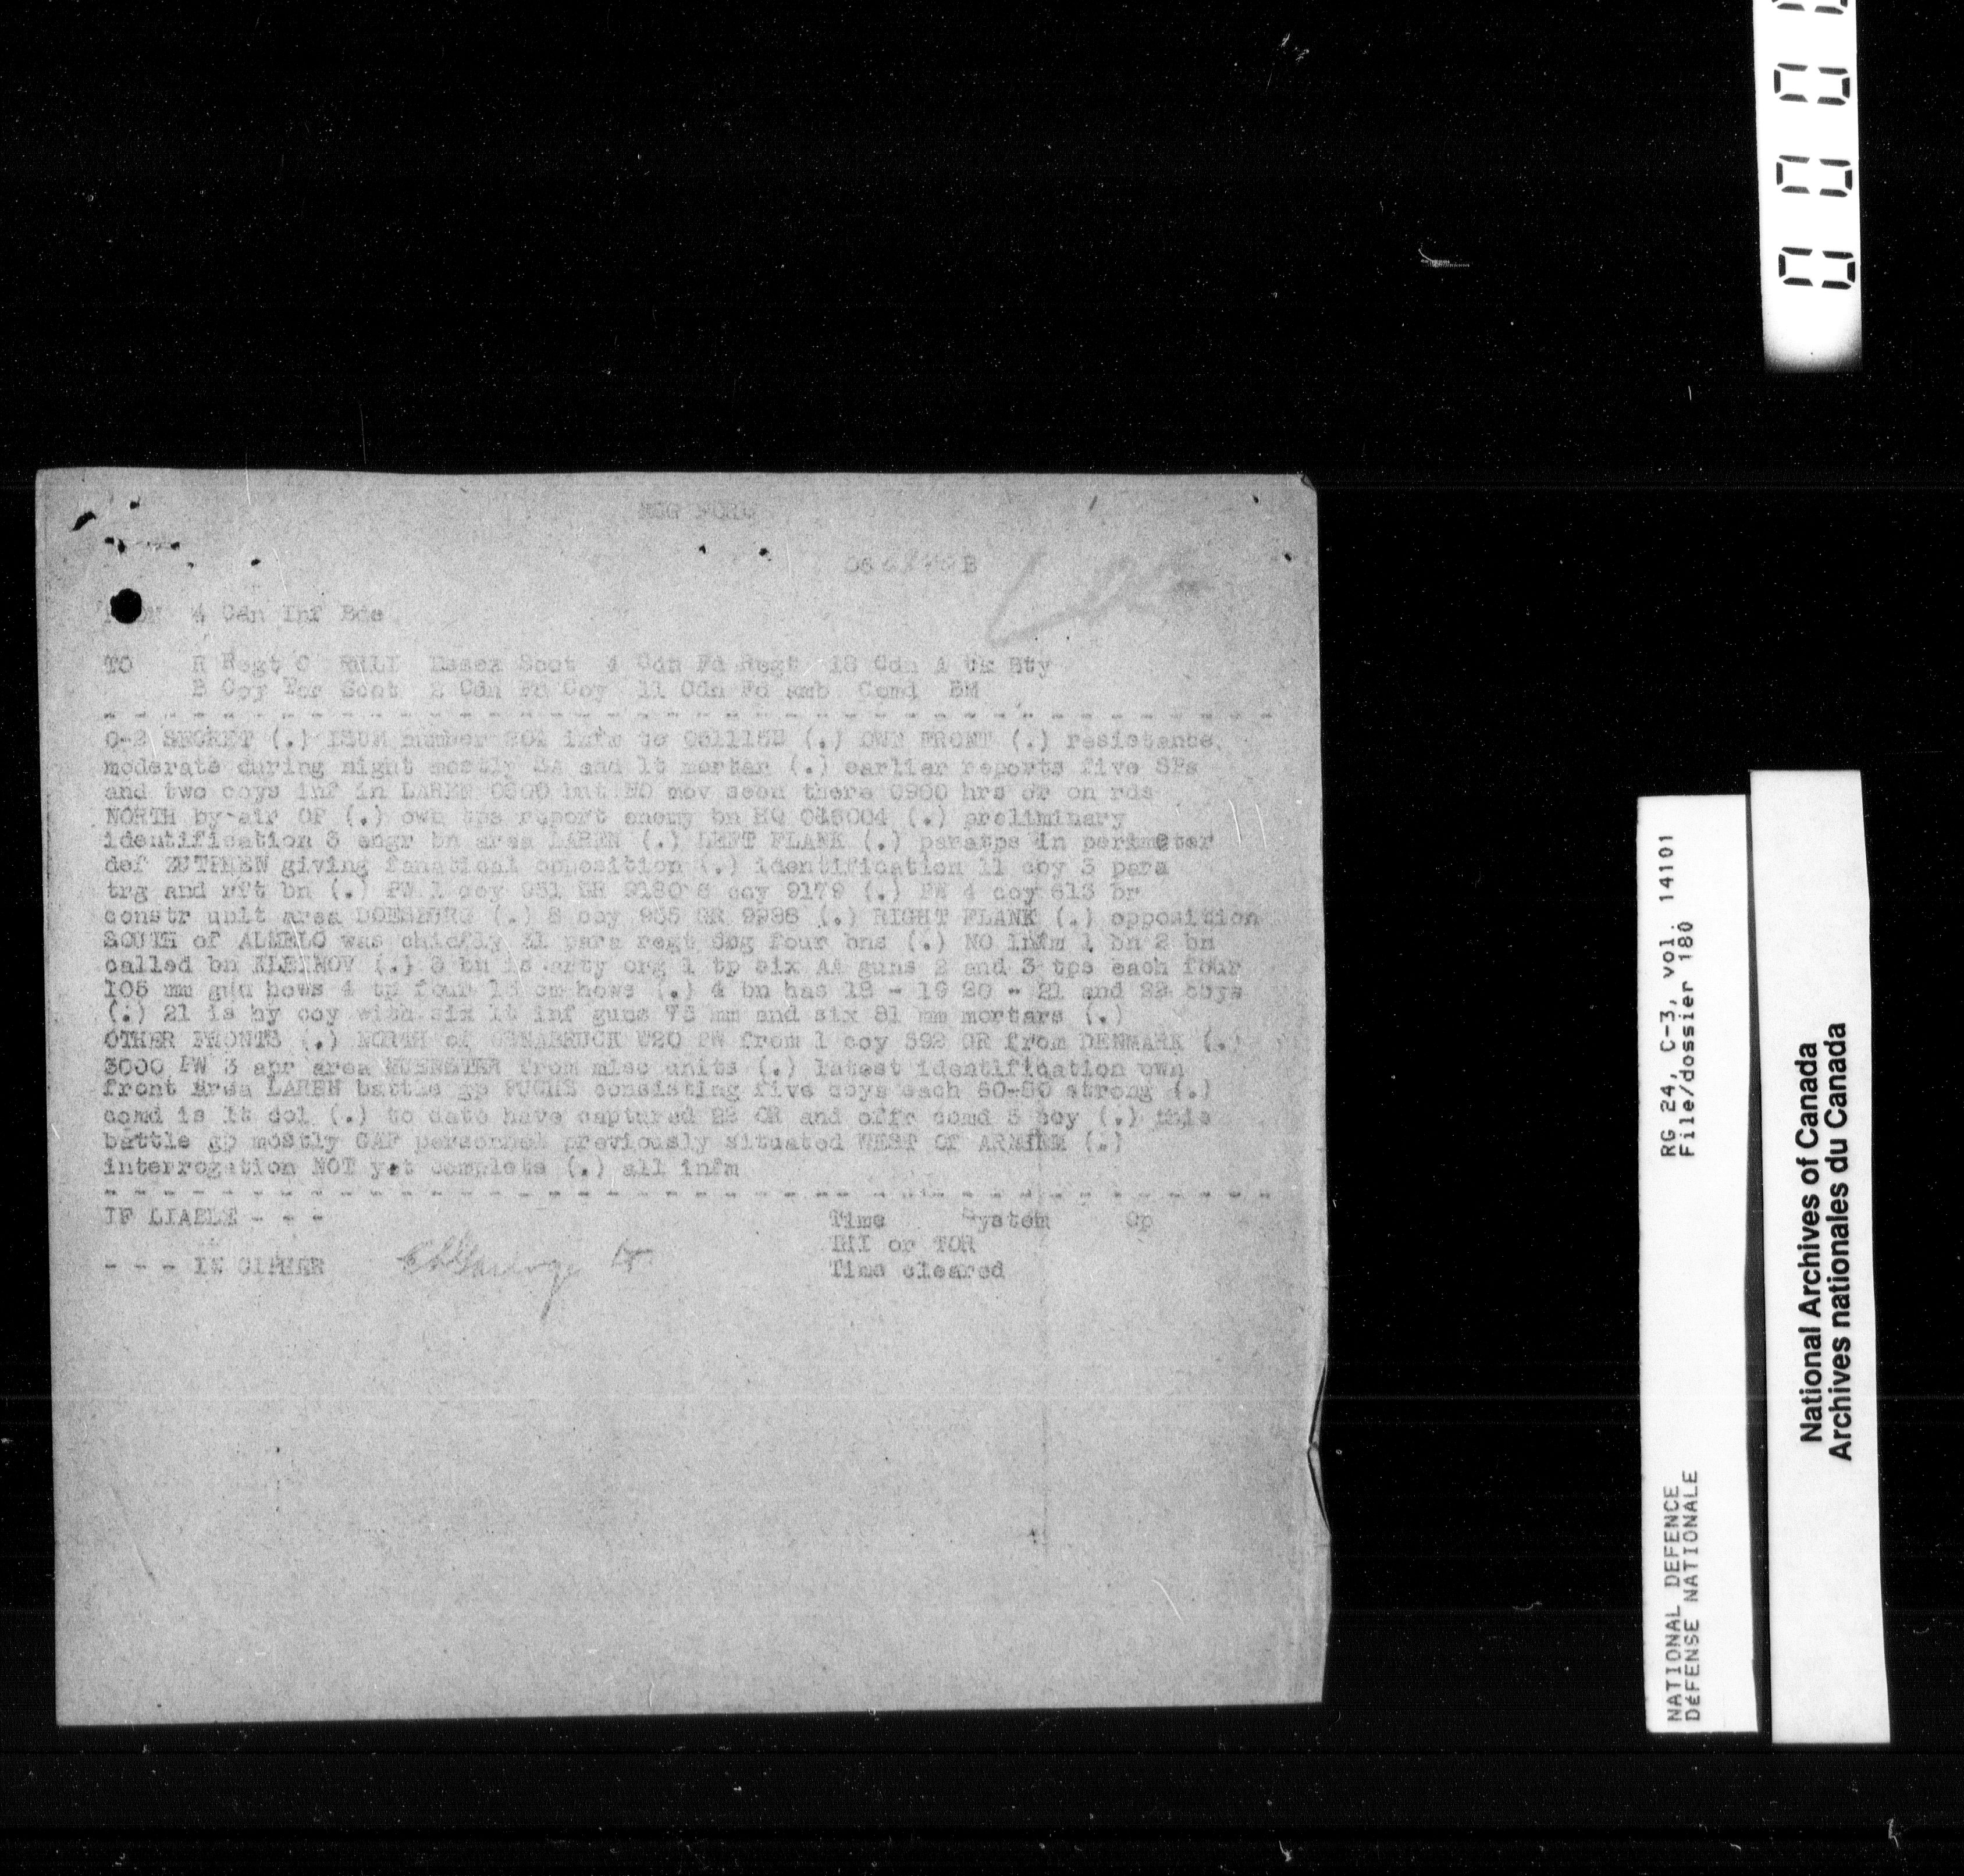 MSG FORM
B
4 Cdn Inf Bde
TO R Regt C RHLI Essex Scot 4 Cdn Fd Regt 18 Cdn A Tk Bty
B Coy Tor Scot 2 Cdn Fd Coy 11 Cdn Fd Amb Comd BM
O-2 SECRET (.) ISUM number infm to 051115B (.) OWN FRONT (.) resistance
moderate during night mostly SA and lt mortar (.) earlier reports five SPs
and two coys inf in LAREN 0600 but NO mov seen there 0900 hrs or on rds
NORTH by air OP (.) own tps report enemy bn HQ (.) preliminary
identification engr bn area LAREN (.) LEFT FLANK (.) paratps in perimeter
def ZUTPHEN giving fanatical opposition (.) identification 11 coy 3 para
trg and rft bn (.) PW 1 coy 951 GR 9180 coy 9179 (.) PW 4 coy 613 br
constr unit area DOESBURG (.) 8 coy GR (.) RIGHT FLANK (.) opposition
SOUTH of ALMELO was chiefly 31 para regt four bns (.) NO infm 1 bn 2 bn
called bn (.) 3 bn is arty org 1 tp six AA guns 2 and 3 tps each four
105 mm gun hows 4 tp four 15 cm hows (.) 4 bn has 18 - 19 20 - 21 and 22 coys
(.) 21 is hy coy with six lt inf guns 75 mm and six 81 mm mortars (.)
OTHER FRONTS (.) NORTH of OSNABRUCK PW from 1 coy 592 GR from DENMARK (.)
3000 PW 3 apr area MUENSTER from misc units (.) latest identification own
front area LAREN battle gp FUCHS consisting five coys each strong (.)
comd is lt col (.) to date have captured 22 OR and offr comd 5 coy (.) this
battle gp mostly GAF personnel previously situated WEST OF ARNHEM (.)
interrogation NOT yet complete (.) all infm
IF LIABLE - - -
Time System Op
THI or TOR
- - - IN CIPHER
Time cleared
RG 24, C-3, vol. 14101
File/dossier 180
NATIONAL DEFENCE
DÉFENSE NATIONALE
National Archives of Canada
Archives nationales du Canada